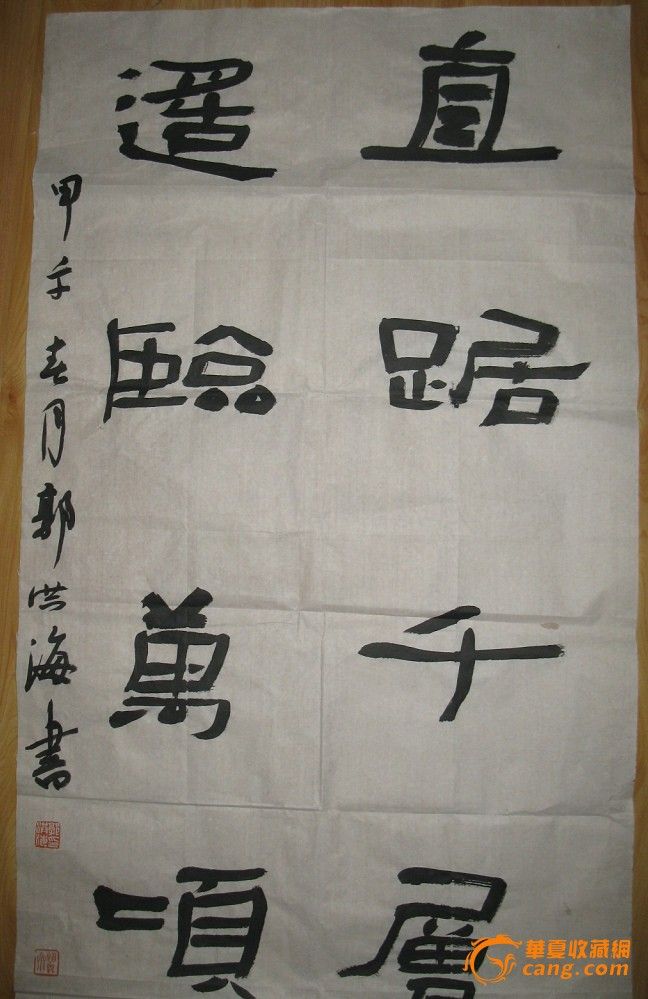 直踞千層
還臨萬頃
甲午春月郭洪海書
華夏收藏網
cang.com